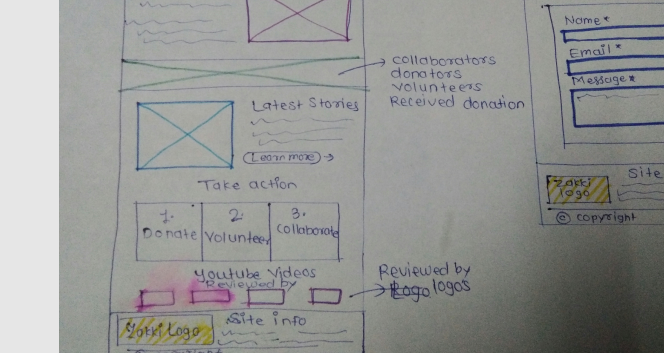 collaborators
donators
volunteers
Received donation
Latest Stories
Learn more →
Take action
1. Donate
2. Volunteer
3. Collaborate
Youtube Videos
Reviewed by
Reviewed by
logos
Zakki Logo
Site info
Name*
Email*
Message*
Zakki
logo
Site
© copyright